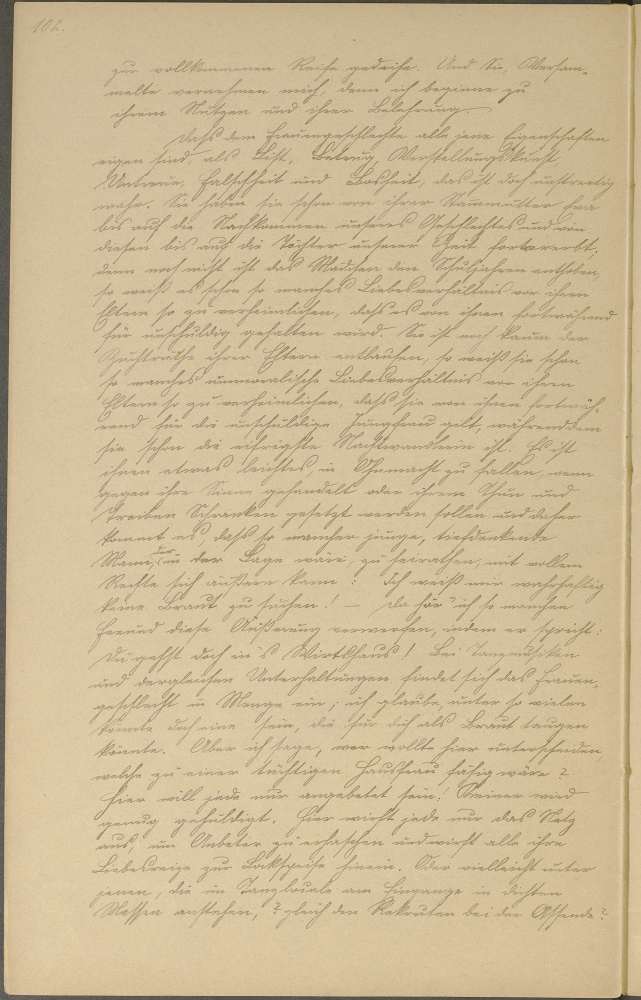 102.
zur vollkommenen Reife gedeihe. Und Sie, Versam-
melte vernehmen mich, denn ich beginne zu
ihrem Nutzen und ihrer Belehrung.
Daß dem Frauengeschlechte alle jene Eigenschaften
eigen sind, als List, Betrug, Verstellungskunst
Untreue, Falschheit und Bosheit, das ist doch unstreitig
wahr. Sie haben sie schon von ihrer Stammutter Eva
bis auf die Nachkommen unseres Geschlechtes und von
diesen bis auf die Töchter unserer Zeit fortvererbt,
denn noch nicht ist das Mädchen den Schuljahren enthoben,
so weiß es schon so manches Liebesverhältnis vor ihren
Eltern so zu verheimlichen, daß es von ihnen fortwährend
für unschuldig gehalten wird. Sie ist noch kaum der
Zuchtruthe ihrer Eltern entlaufen, so weiß sie schon
so manches unmoralische Liebesverhältnis vor ihren
Eltern so zu verheimlichen, daß sie von ihnen fortwäh-
rend für die unschuldige Jungfrau gilt, währenddem
sie schon die eifrigste Nachtwandlerin ist. Es ist
ihnen etwas leichtes in Ohnmacht zu fallen, wenn
gegen ihre Sinne gehandelt oder ihrem Thun und
Treiben Schranken gesetzt werden sollen und daher
kommt es, daß so mancher junge, tiefdenkende
Mann, der in der Lage wäre, zu heirathen, mit vollem
Rechte sich äußern kann: Ich weiß mir wahrhaftig
keine Braut zu suchen! – Da hör' ich so manchen
Freund diese Äußerung verwerfen, indem er spricht:
Du gehst doch in's Wirtshaus! Bei Tanzmusiken
und dergleichen Unterhaltungen findet sich das Frauen-
geschlecht in Menge ein; ich glaube, unter so vielen
könnte doch eine sein, die für dich als Braut taugen
könnte. Aber ich sage, wer wollte hier unterscheiden,
welche zu einer tüchtigen Hausfrau fähig wäre?
Hier will jede nur angebetet sein! Keiner wird
genug gehuldigt. Hier wirft jede nur das Netz
aus, um Anbeter zu erhaschen und wirft alle ihre
Liebesreize zur Lockspeise hinein. Oder vielleicht unter
jenen, die im Tanzlocale am Eingange in dichten
Massen anstehen, gleich den Rekruten bei der